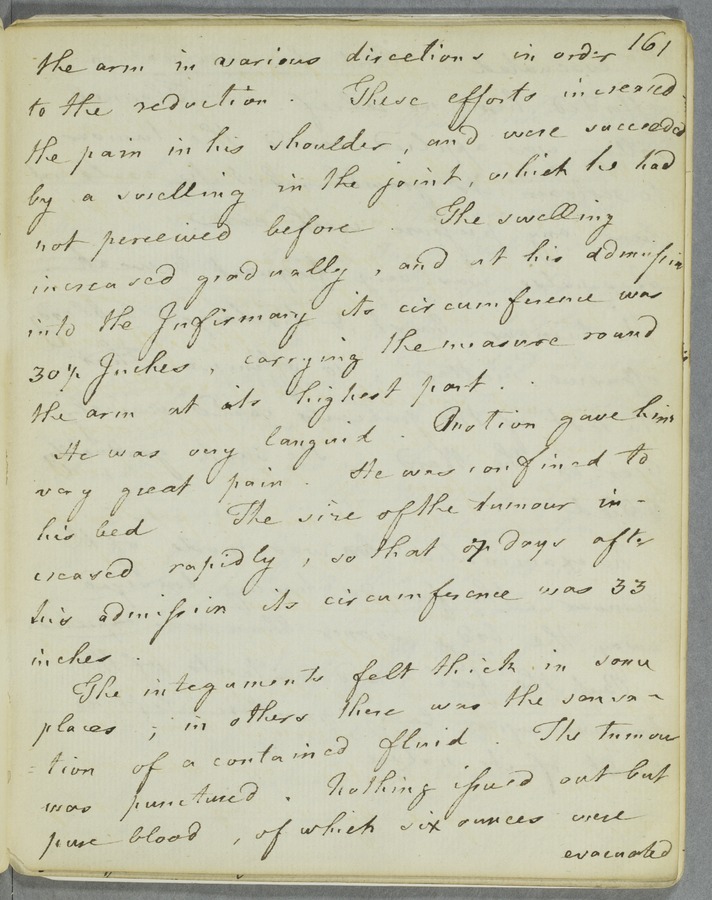 161
the arm in various directions in order
to the reduction. These efforts increased
the pain in his shoulder, and were succeeded
by a swelling in the joint, which he had
not perceived before. The swelling
increased gradually, and at his admission
into the Infirmary its circumference was
30½ Inches, carrying the measure round
the arm at its highest part.
He was very languid. Motion gave him
very great pain. He was confined to
his bed The size of the tumour in-
creased rapidly, so that 7 days after
his admission its circumference was 33
inches.
The integuments felt thick in some
places, in others there was the sensa-
tion of a contained fluid. The tumour
was punctured. Nothing issued out but
pure blood, of which six ounces were
evacuated